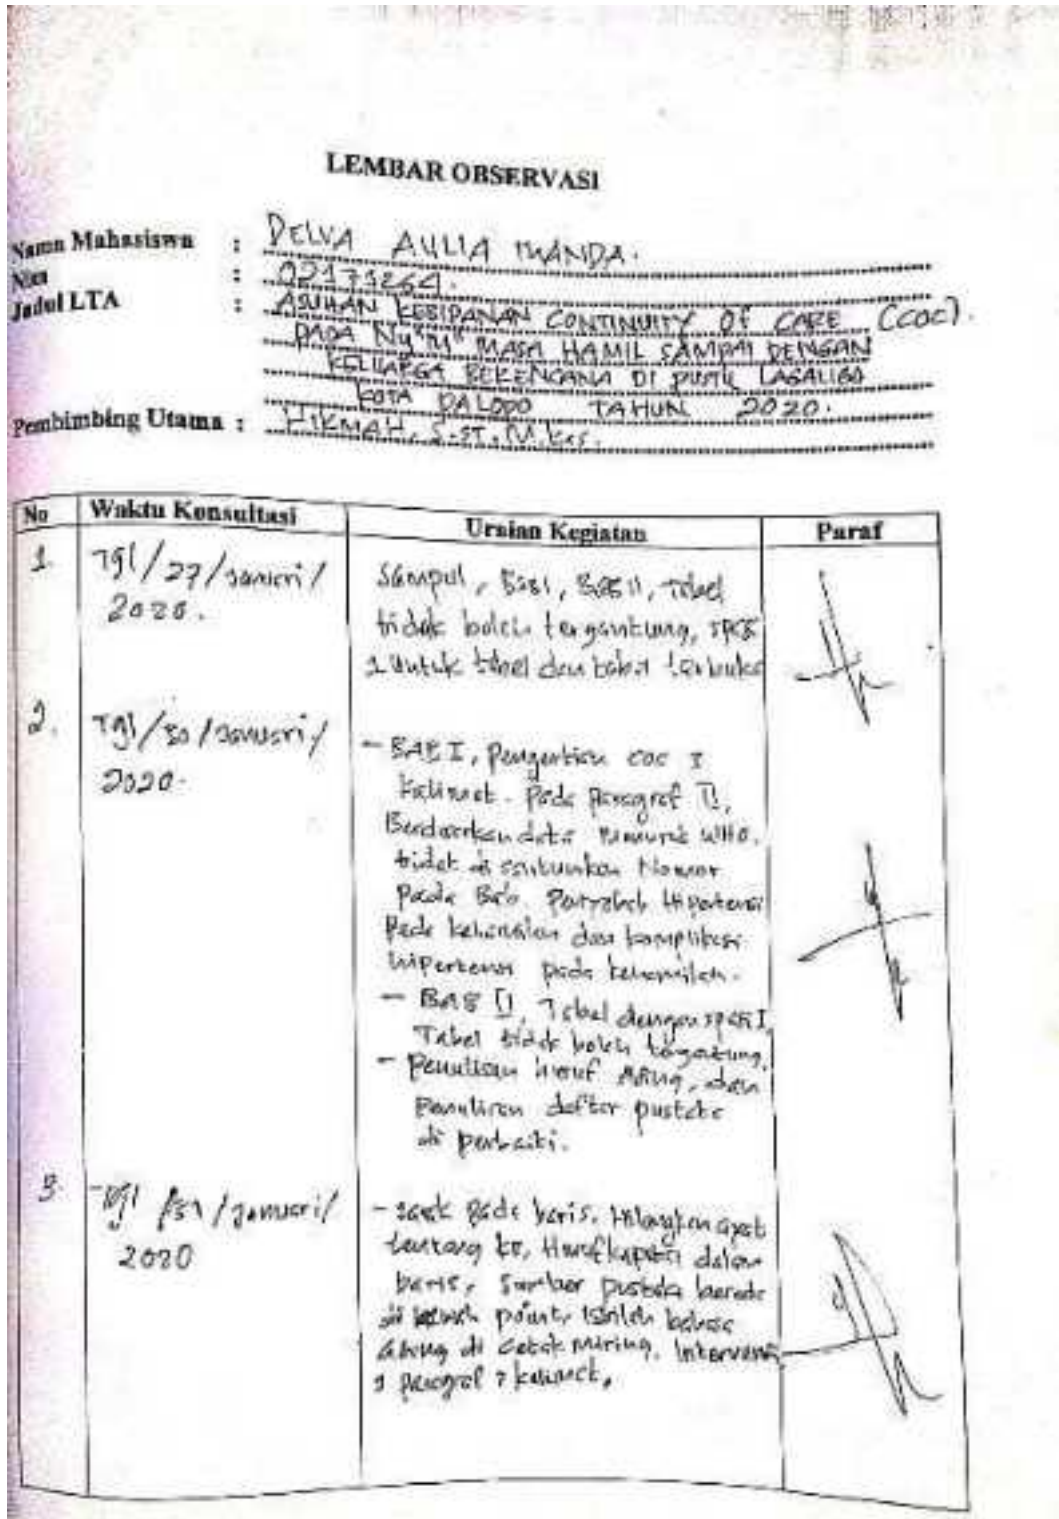 LEMBAR OBSERVASI
Nama Mahasiswa : DELVA AULIA
Nim : 02171264.
Judul LTA : ASUHAN KEBIDANAN CONTINUITY OF CARE (COC).
PADA Ny"M" MASA HAMIL SAMPAI DENGAN
KELUARGA BERENCANA DI PUSTU LAGALIGO
KOTA PALOPO TAHUN 2020.
Pembimbing Utama : HIKMAH, S.ST, M.Kes.
No Waktu Konsultasi Uraian Kegiatan Paraf
1. Tgl/27/Januari/
2020.
Sampul, BAB I, BAB II, Tabel
tidak boleh tergantung,
1 untuk tabel dan tabel terbuka
2. Tgl/30/Januari/
2020.
- BAB I, Pengertian COC 3
Kalimat. Pada Paragraf II,
Berdasarkan data menurut WHO.
tidak di cantumkan Nomor
Pada Bab. Penyebab Hipertensi
Pada kehamilan dan komplikasi
hipertensi pada kehamilan.
- BAB II, Tabel dengan
Tabel tidak boleh tergantung,
- Penulisan huruf Asing, dan
Penulisan daftar pustaka
di perbaiki.
3. Tgl/31/Januari/
2020
- Jarak pada baris. Hilangkan ayat
tentang Huruf kapital dalam
baris, Sumber pustaka berada
di bawah point, Istilah bahasa
Asing di cetak miring. Intervensi
1 paragraf 3 kalimat.